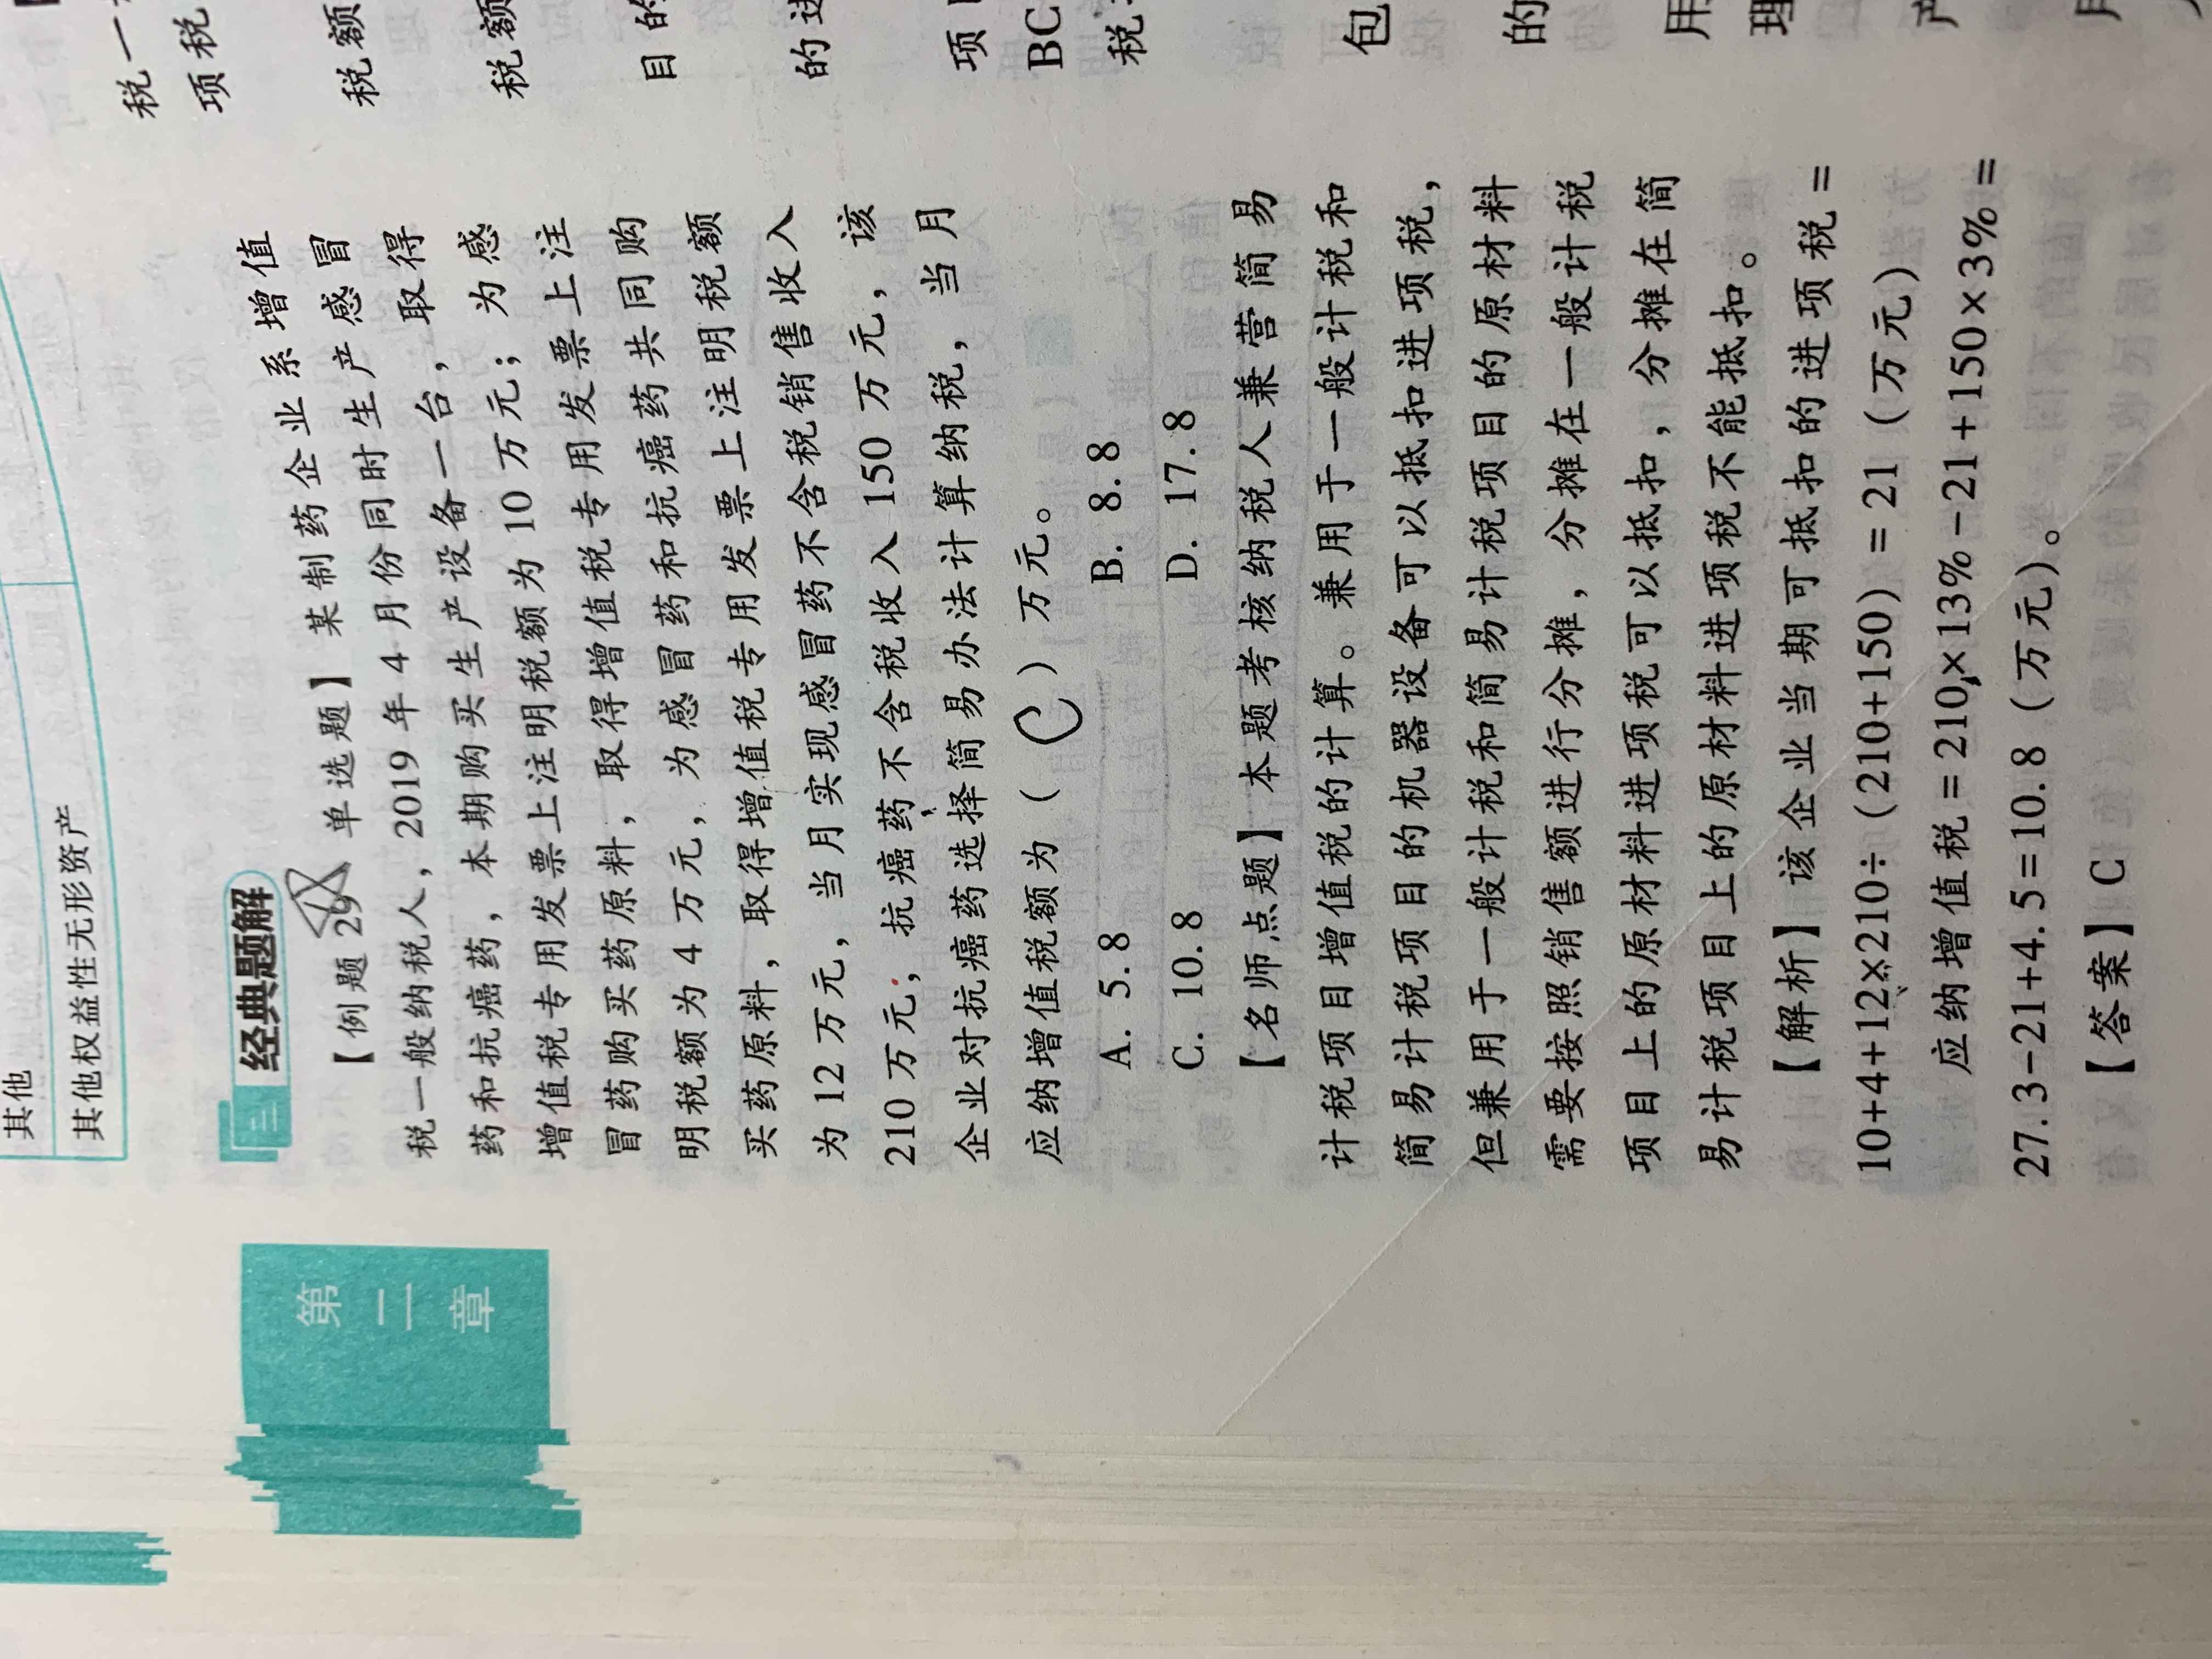 其他
其他权益性无形资产
第二章
三 经典题解
【例题 29 单选题】某制药企业系增值
税一般纳税人，2019 年 4 月份同时生产感冒
药和抗癌药，本期购买生产设备一台，取得
增值税专用发票上注明税额为 10 万元；为感
冒药购买药原料，取得增值税专用发票上注
明税额为 4 万元，为感冒药和抗癌药共同购
买药原料，取得增值税专用发票上注明税额
为 12 万元，当月实现感冒药不含税销售收入
210 万元，抗癌药不含税收入 150 万元，该
企业对抗癌药选择简易办法计算纳税，当月
应纳增值税额为（ C ）万元。
A. 5.8 B. 8.8
C. 10.8 D. 17.8
【名师点题】本题考核纳税人兼营简易
计税项目增值税的计算。兼用于一般计税和
简易计税项目的机器设备可以抵扣进项税，
但兼用于一般计税和简易计税项目的原材料
需要按照销售额进行分摊，分摊在一般计税
项目上的原材料进项税可以抵扣，分摊在简
易计税项目上的原材料进项税不能抵扣。
【解析】该企业当期可抵扣的进项税＝
10+4+12×210÷（210+150）=21（万元）
应纳增值税=210×13%-21+150×3%=
27.3-21+4.5=10.8（万元）。
【答案】C
税一
项税
税额
税额
目的
的进
项
BC
税
包
的
用
理
产
月